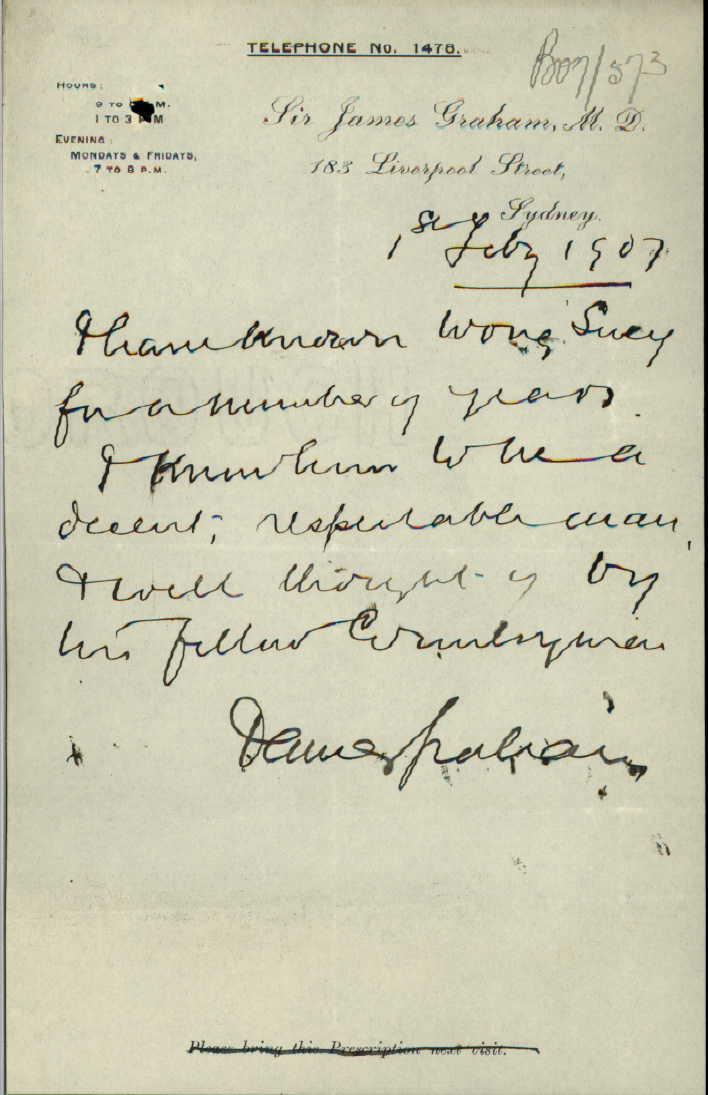 TELEPHONE No. 1478.
B07/573
HOURS:
9 TO M.
1 TO 3 P.M
EVENING:
MONDAYS & FRIDAYS,
7 TO 8 P.M.
Sir James Graham, M. D.
183 Liverpool Street,
Sydney.
1st Feby 1907
I have known Wong Suey
for a number of years.
I know him to be a
decent, respectable man,
& well thought of by
his fellow Countrymen
James Graham
Please bring this Prescription next visit.